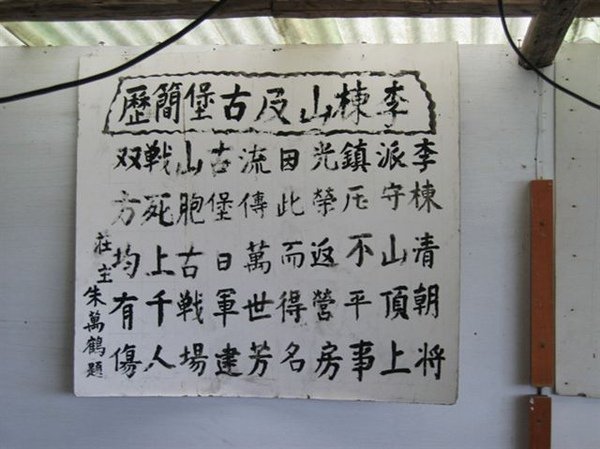 李棟山及古堡簡歷
李棟清朝將
派守山頂上
鎮压不平事
光榮返營房
因此而得名
流傳萬世芳
古堡日軍建
山胞古戦場
戦死上千人
双方均有傷
莊主朱萬鶴題